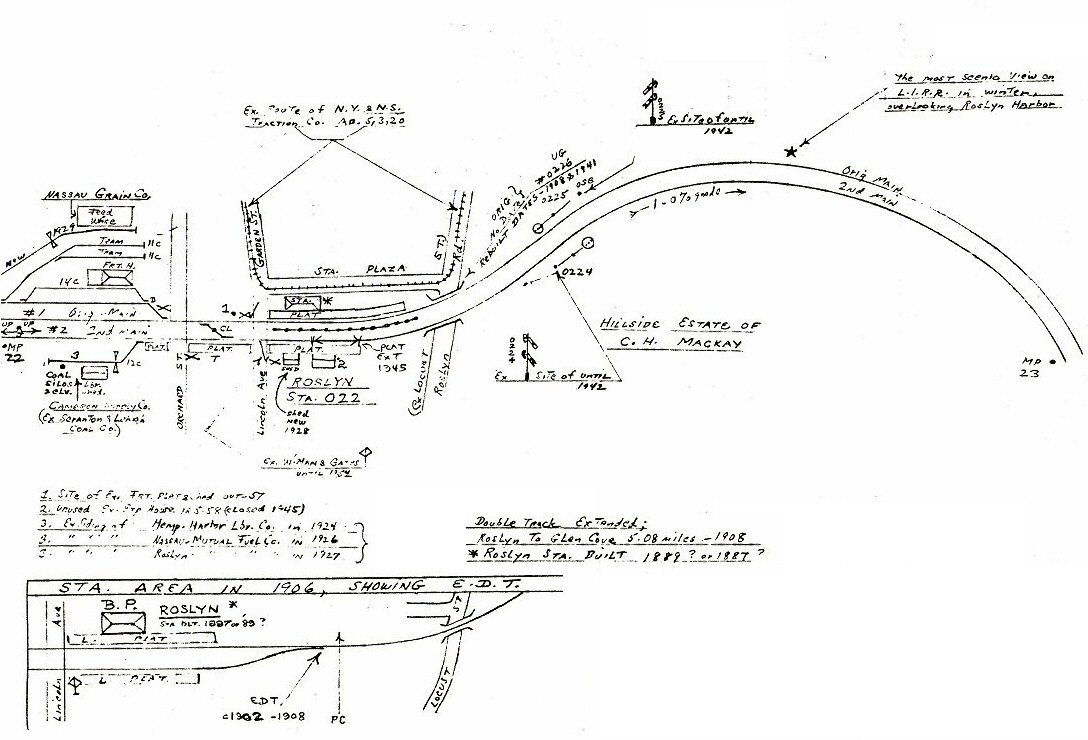 The most scenic View on
L.I.R.R. in winter,
overlooking Roslyn Harbor
Ex. Route of N.Y. & N.S.
Traction Co. AB. 5,3,20
Ex Site of until
1942
NASSAU GRAIN CO.
Feed
Whse
1929
NEW
TEAM
11c
TEAM
11c
FRT. H.
14c
D
#1 Orig. Main
UP UP #2 2nd Main
MP
22
3
12c
COAL
SILOS
& ELV.
Lbr.
shed.
CAMERON SUPPLY Co.
(Ex SCRANTON & LEHIGH
COAL CO.)
PLAT.
ORCHARD ST
CL
PLAT.
T
GARDEN ST.
STA. PLAZA
STA. *
PLAT
1
PLAT.
SHED
2
PLAT
EXT
1945
LINCOLN AVE
ROSLYN
STA. 022
Shed
new
1928
(Ex LOCUST
Roslyn
ST.)
Rd.
Ex. W'MAN & GATES
until
ORIG
No Dive
Rebuilt DATES - 1908 & 1941
UG
#0226
0225
OSG
0224
1.0% grade
Orig Main
2nd Main
HILLSIDE ESTATE OF
C. H. MACKAY
Ex Site of until
1942
MP
23
1. Site of Ex. FRT. PLAT & shed out-57
2. Unused Ex. Exp House in 5-58 (closed 1945)
3. Ex Siding of Hemp. Harbor Lbr. Co. in 1924
3. " " " Nassau-Mutual Fuel Co. in 1926
3. " " " Roslyn " " " in 1927
Double Track Extended;
Roslyn To Glen Cove 5.08 miles - 1908
* Roslyn STA. BUILT 1889? or 1887?
STA. AREA IN 1906, SHOWING E.D.T.
Lincoln Ave
B.P.
ROSLYN *
STA BLT. 1887 or '89?
L. PLAT
L PLAT.
E.D.T.
c1902 - 1908
PC
LOCUST ST